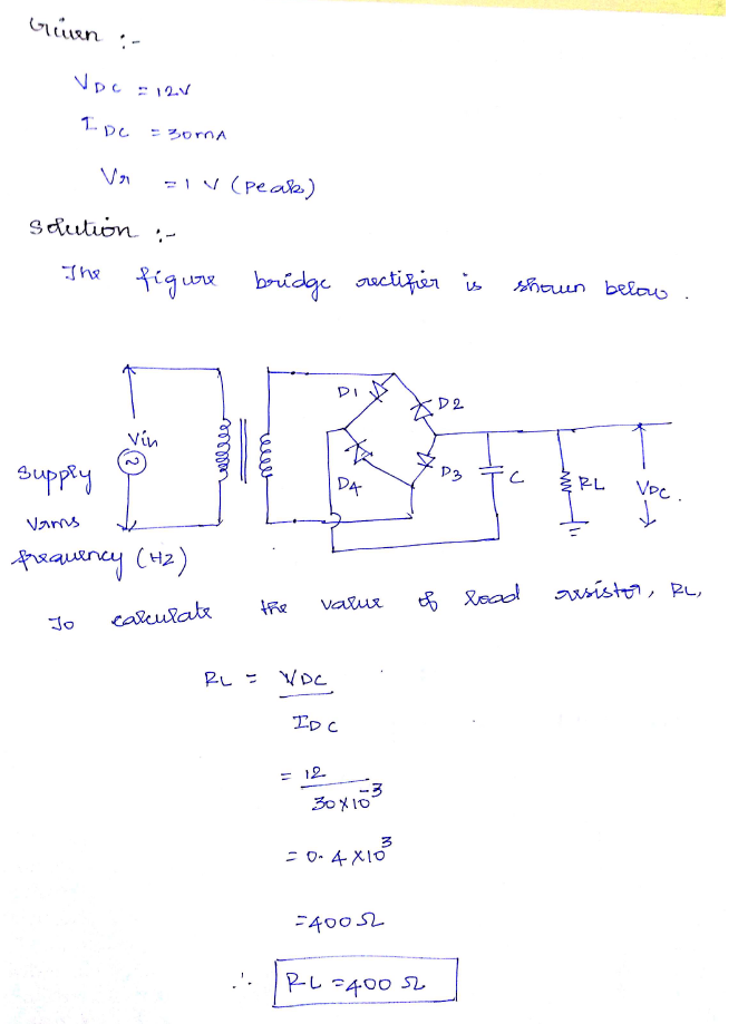 Given :-
VDC = 12V
IDC = 30mA
Vr = 1 V (peak)
Solution :-
The figure bridge rectifier is shown below.
D1
D2
Vin
Supply
D4
D3
C
RL
VDC.
Vrms
frequency (Hz)
To calculate the value of load resistor, RL,
RL = VDC
IDC
= 12
30×10⁻³
= 0.4×10³
=400Ω
∴ RL =400 Ω